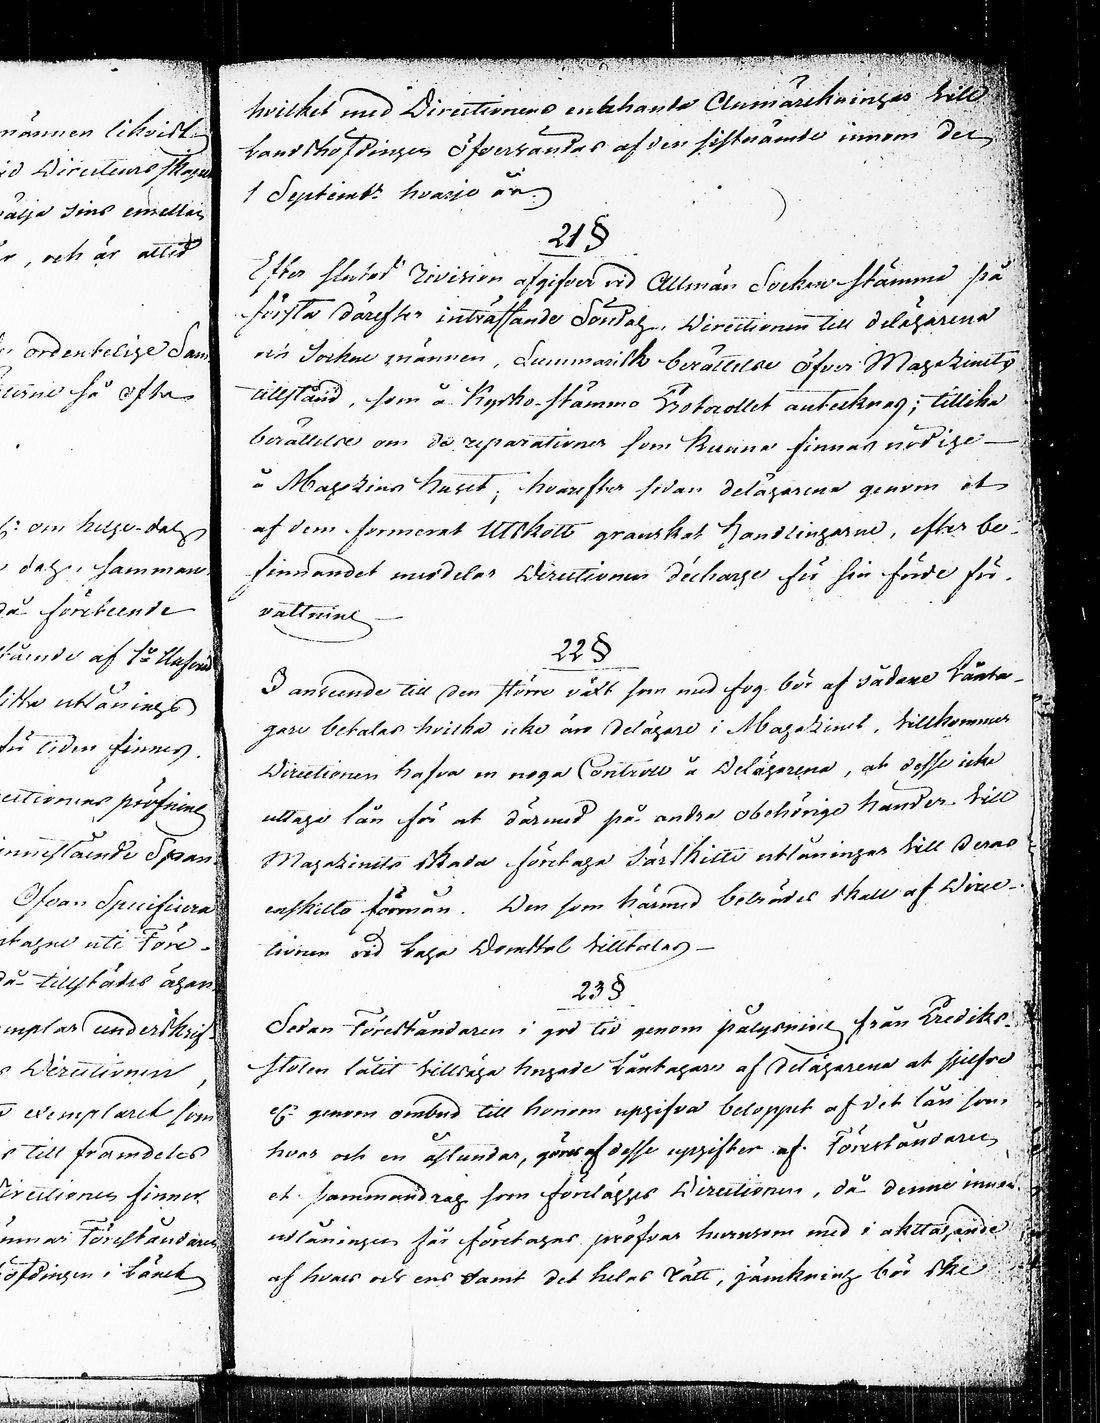 männen likvid
id Directeurs skapet
välja sins emellan
r, och är altid
ordentelige Sam
terne så ofta
Er om helge-dag
dag, samman
då företeende
stående af
litta utlånings
för tiden finnes.
ectionens pröfning
innestående Span
Ofvan Specificera
ntagne uti Före-
då tillstädes ägan
emplar underskrif-
s Directionen,
exemplaret som
s till framdeles
Directionen finner
ämnar Föreståndaren
höfdingen i Länet
hvilket med Directionens enahanda Anmärkningar till
Landshöfdingen öfversändas af den sistnämde innom den
1 Septembr hvarje år.
21 §
Efter slutad Revision afgifver vid Allmän Sockne-stämma på
första därefter inträffande Söndag, Directionen till delägarena
och Sockne männen, Summarisk berättelse öfver Magazinets
tillstånd, som å Kyrko-stämmo Protocollet antecknas; tillika
berättelse om de reparationer som kunna finnas nödige —
å Magazins huset; hvarefter sedan delägarena genom et
af dem formerat Utskott granskat Handlingarne, efter be-
finnandet meddelas Directionen décharge för sin förde för-
valtning —
22 §
I anseende till den större växt som med fog bör af sådane Lånta-
gare betalas hvilka icke äro delägare i Magazinet, tillkommer
Directionen hafva en noga Controll å Delägarena, at desse icke
uttaga lån för at därmed på andra obehöriga händer till
Magazinets skada företaga särskilte utlåningar till deras
enskilta förmån. Den som härmed beträdes skall af Direc-
tionen vid Laga Domstol tilltalas —
23 §
Sedan Föreståndaren i god tid genom pålysning från Prediko-
stolen låtit tillsäga hugade Låntagare af delägarena at sjelfve
Er genom ombud till honom uppgifva beloppet af det lån som
hvar och en åstundar, göres af desse upgifter af Föreståndaren
et sammandrag som förelägges Directionen, då denne innan
utlåningen får företagas pröfvar hurusom med i akttagande
af hvars och ens samt det helas rätt, jämkning bör ske